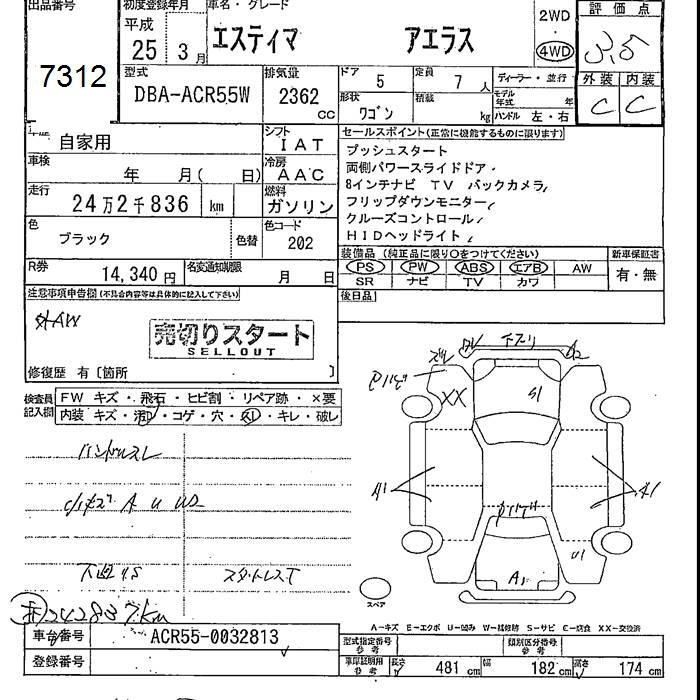 出品番号
7312
初度登録年月
平成
25年 3月
車名・グレード
エスティマ アエラス
2WD
4WD
評価点
3.5
外装 内装
C C
型式
DBA-ACR55W
排気量
2362 cc
ドア 5
定員 7人
形状 ワゴン
積載 kg
ディーラー・並行
モデル年式 年
ハンドル 左・右
車歴 自家用
シフト IAT
冷房 AAC
車検 年 月( 日)
走行 24万2千836 km
燃料 ガソリン
色 ブラック 色替
色コード 202
R券 14,340円
名変通知期限 月 日
セールスポイント(正常に機能するものに限ります)
プッシュスタート
両側パワースライドドア
8インチナビ TV バックカメラ
フリップダウンモニター
クルーズコントロール
HIDヘッドライト
装備品(純正品に限り○をつけてください)
PS PW ABS エアB AW
SR ナビ TV カワ
新車保証書
有・無
後日品
注意事項申告欄(不具合内容等は具体的に記入して下さい)
外AW
売切りスタート
SELLOUT
修復歴 有〔箇所 〕
検査員記入欄
FW キズ・飛石・ヒビ割・リペア跡・×要
内装 キズ・汚レ・コゲ・穴・スレ・キレ・破レ
ハンドルスレ
A U US
下廻りS
スタットレスT
242837km
XX
S1
A2
A1
A1
U1
A1
スペア
A-キズ E-エクボ U-凹み W-補修跡 S-サビ C-腐食 XX-交換済
車台番号 ACR55-0032813
登録番号
型式指定番号 参考
類別区分番号 参考
車庫証明用 参考
長さ 481 cm 幅 182 cm 高さ 174 cm